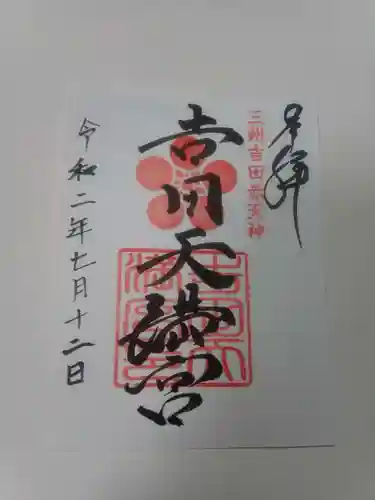 奉拝
三州吉田天満天神
吉田天満宮
令和二年七月十二日